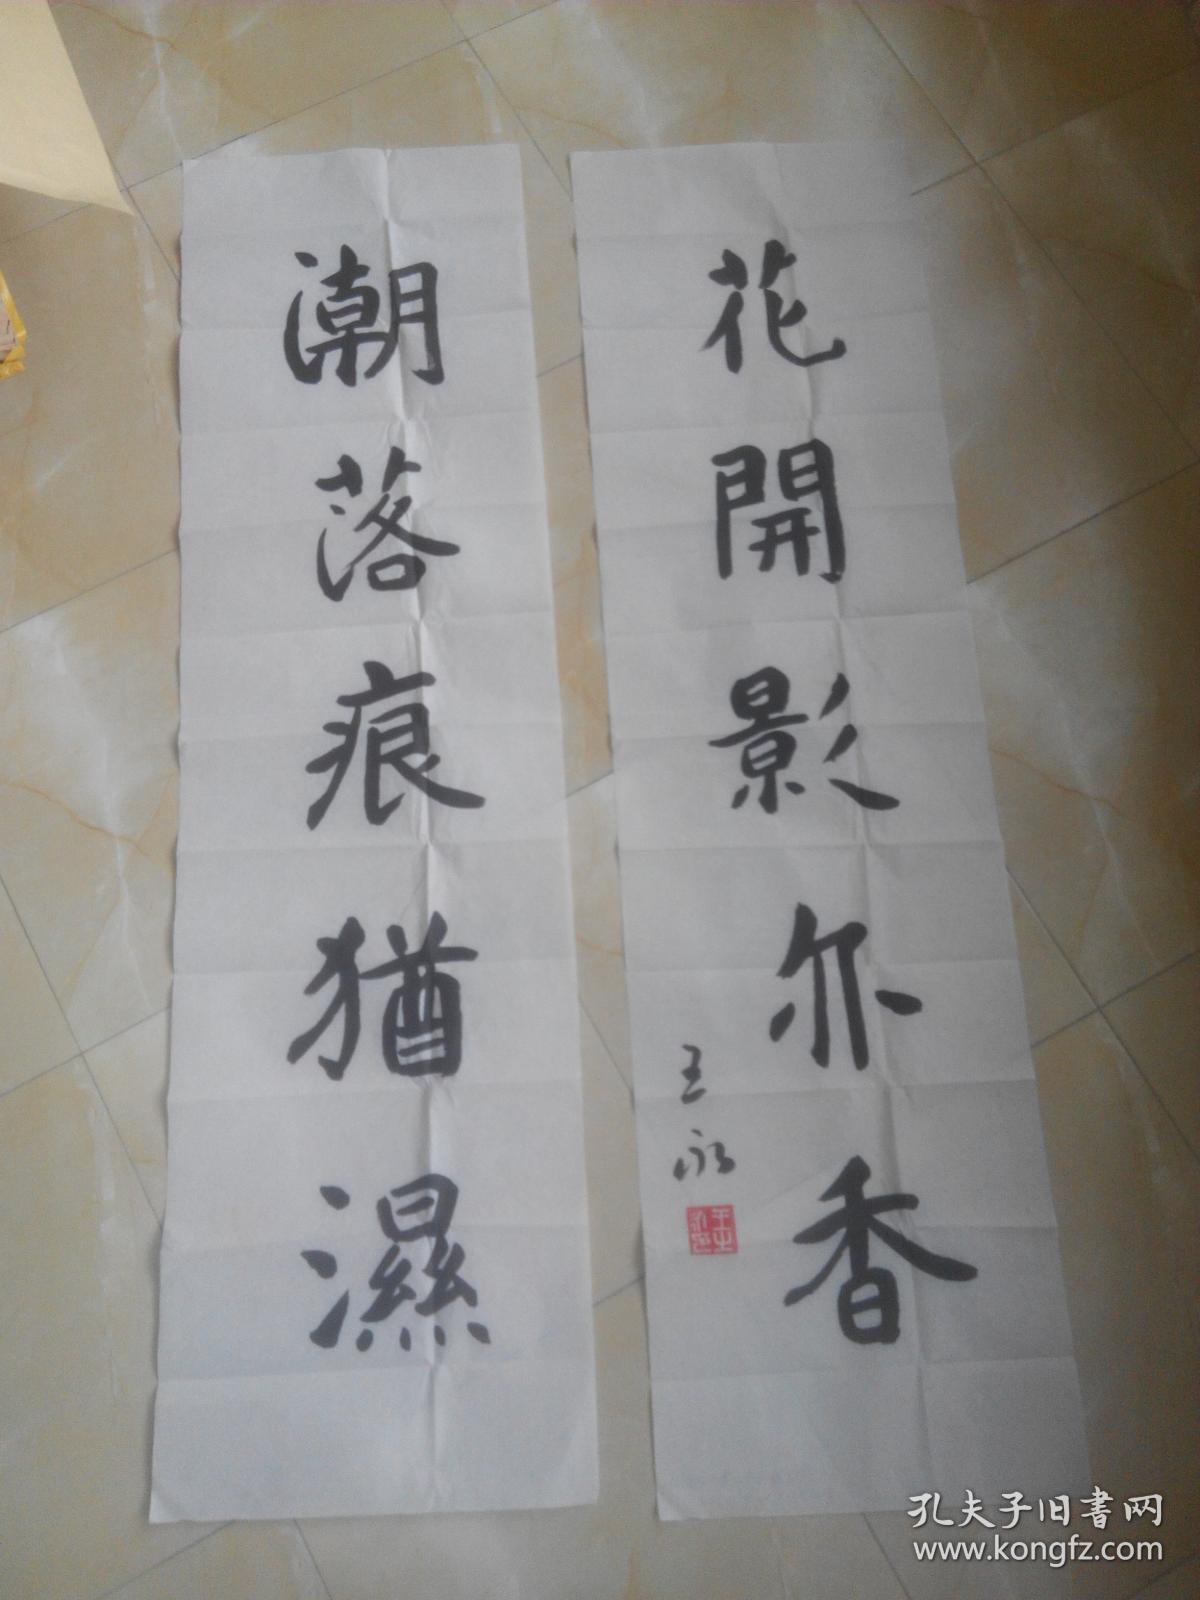 潮落痕猶濕
花開影亦香
王永
王永之印
孔夫子旧書网
www.kongfz.com